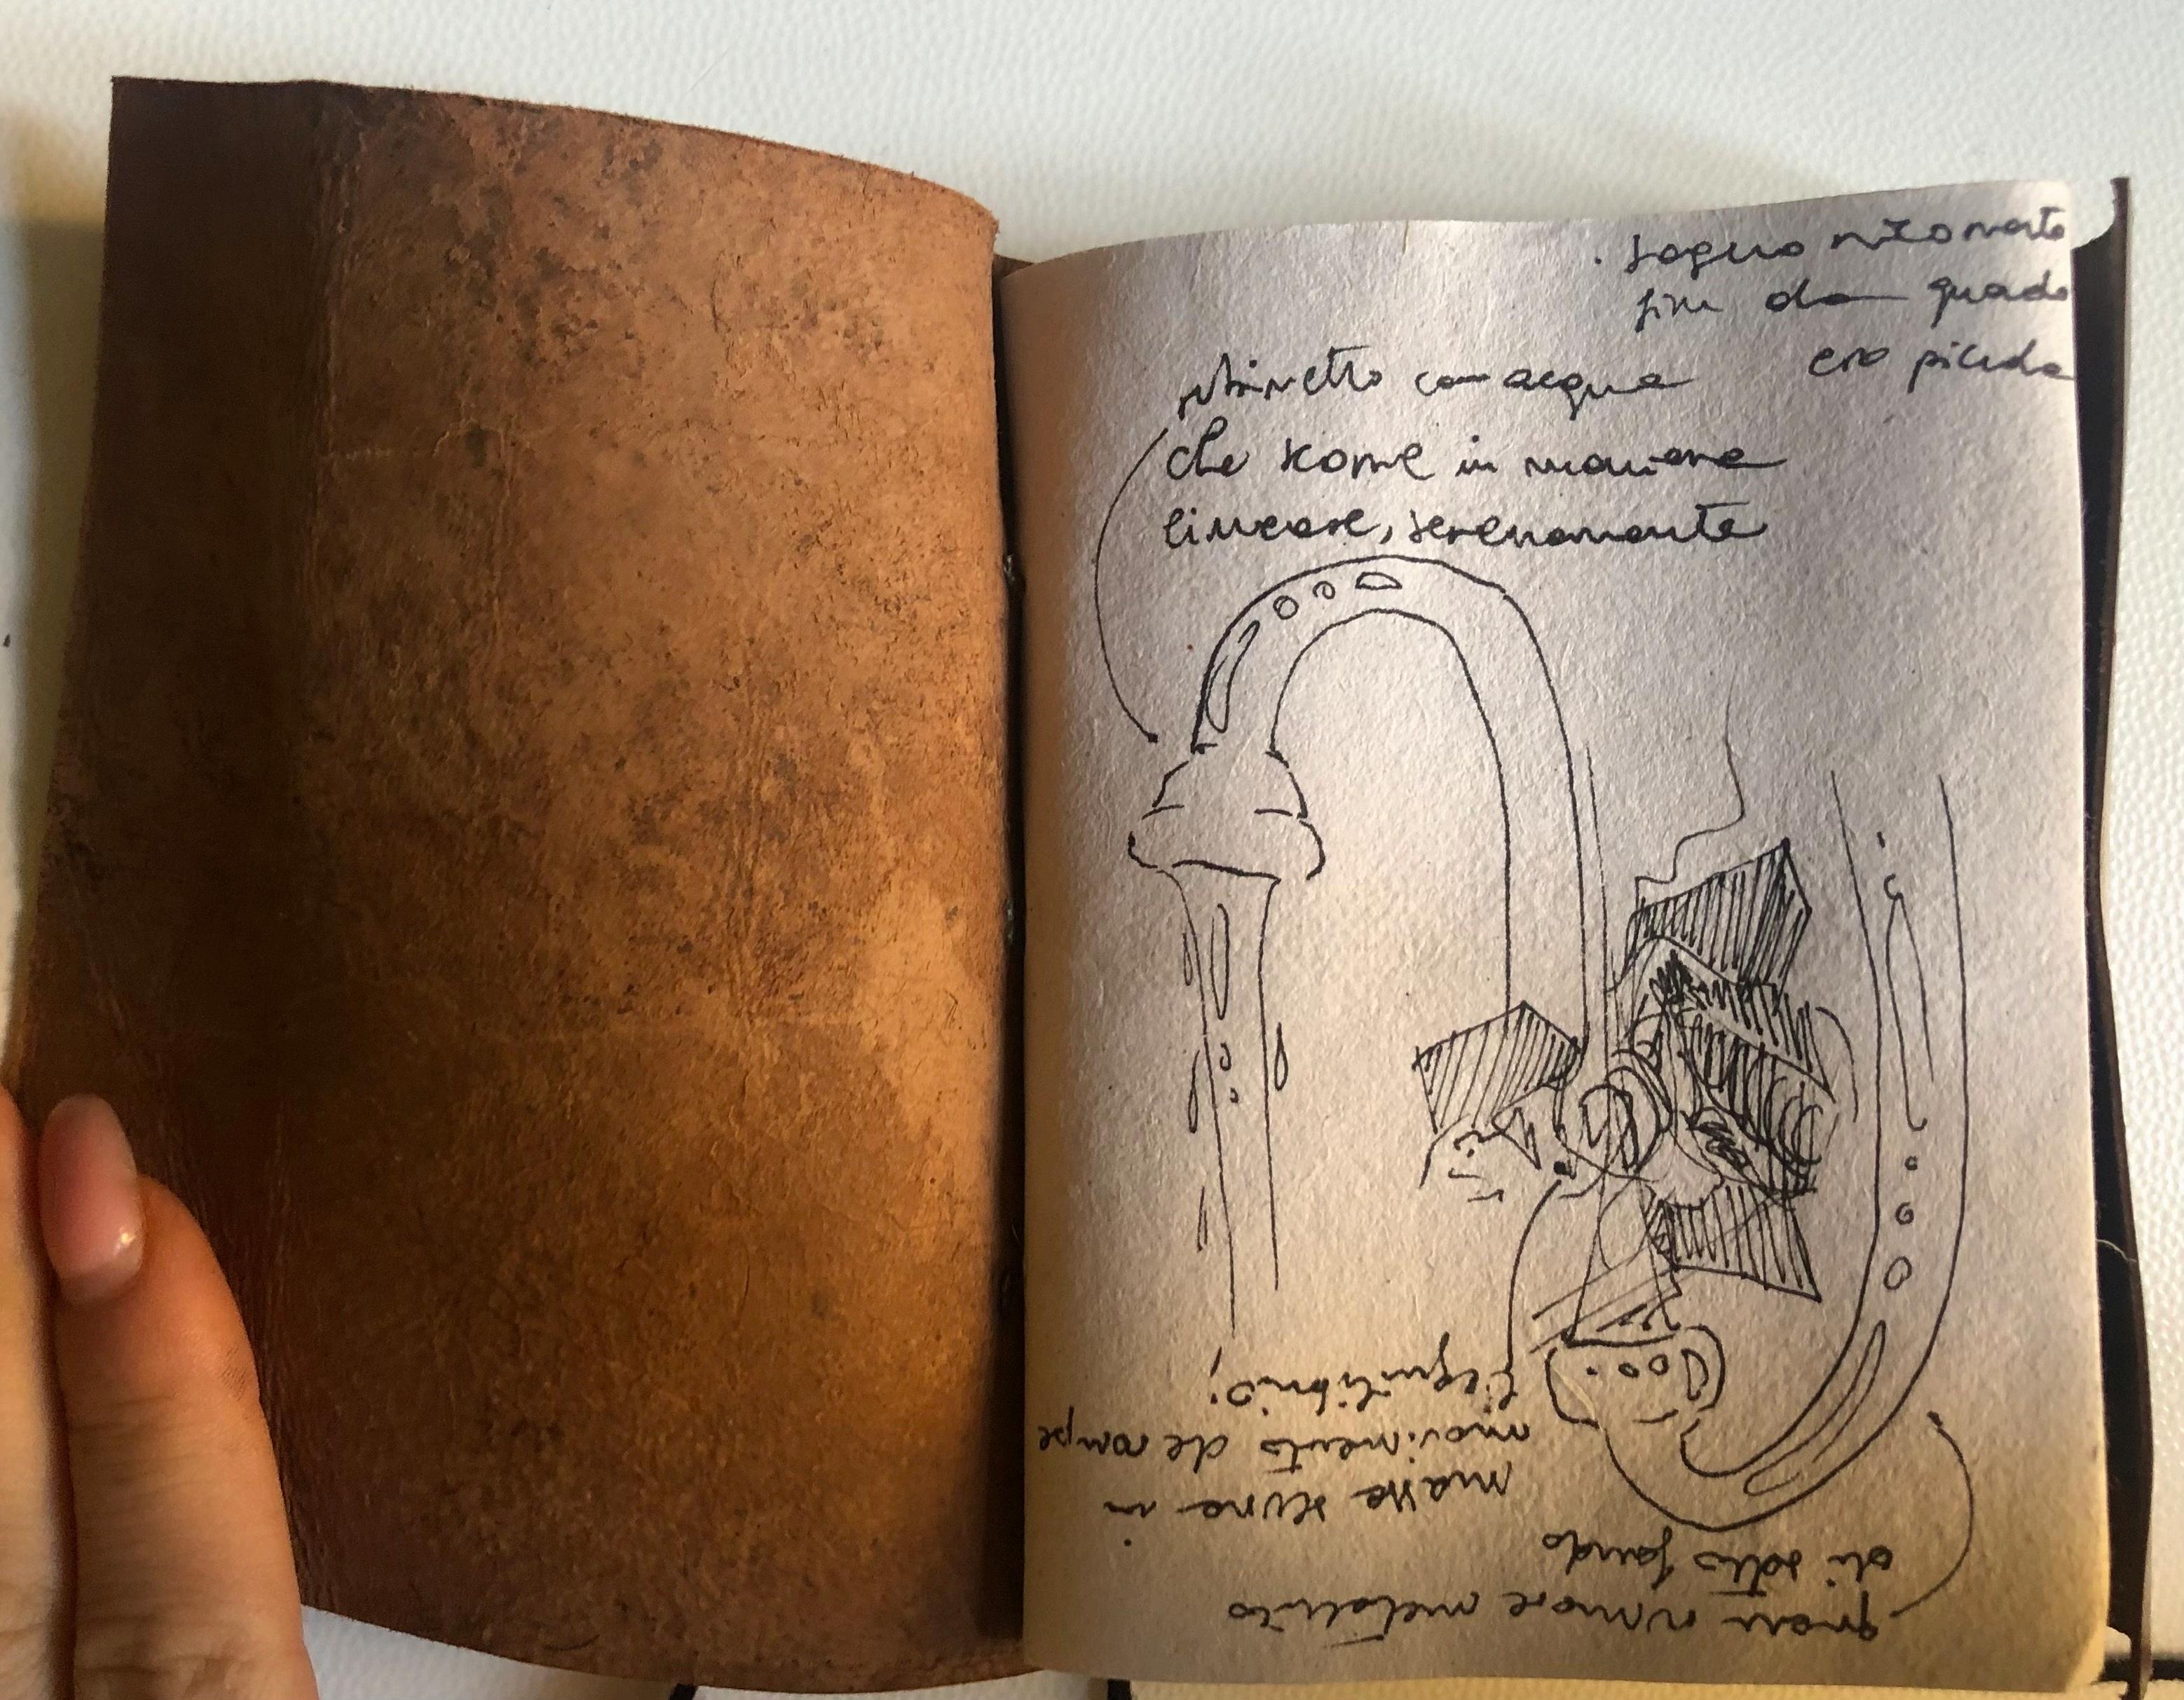 . sogno ritornante
fin da quando
ero piccola
rubinetto con acqua
che scorre in maniera
lineare, serenamente
gran rumore metallico
di sotto fondo
masse scure in
movimento che rompe
l'equilibrio;